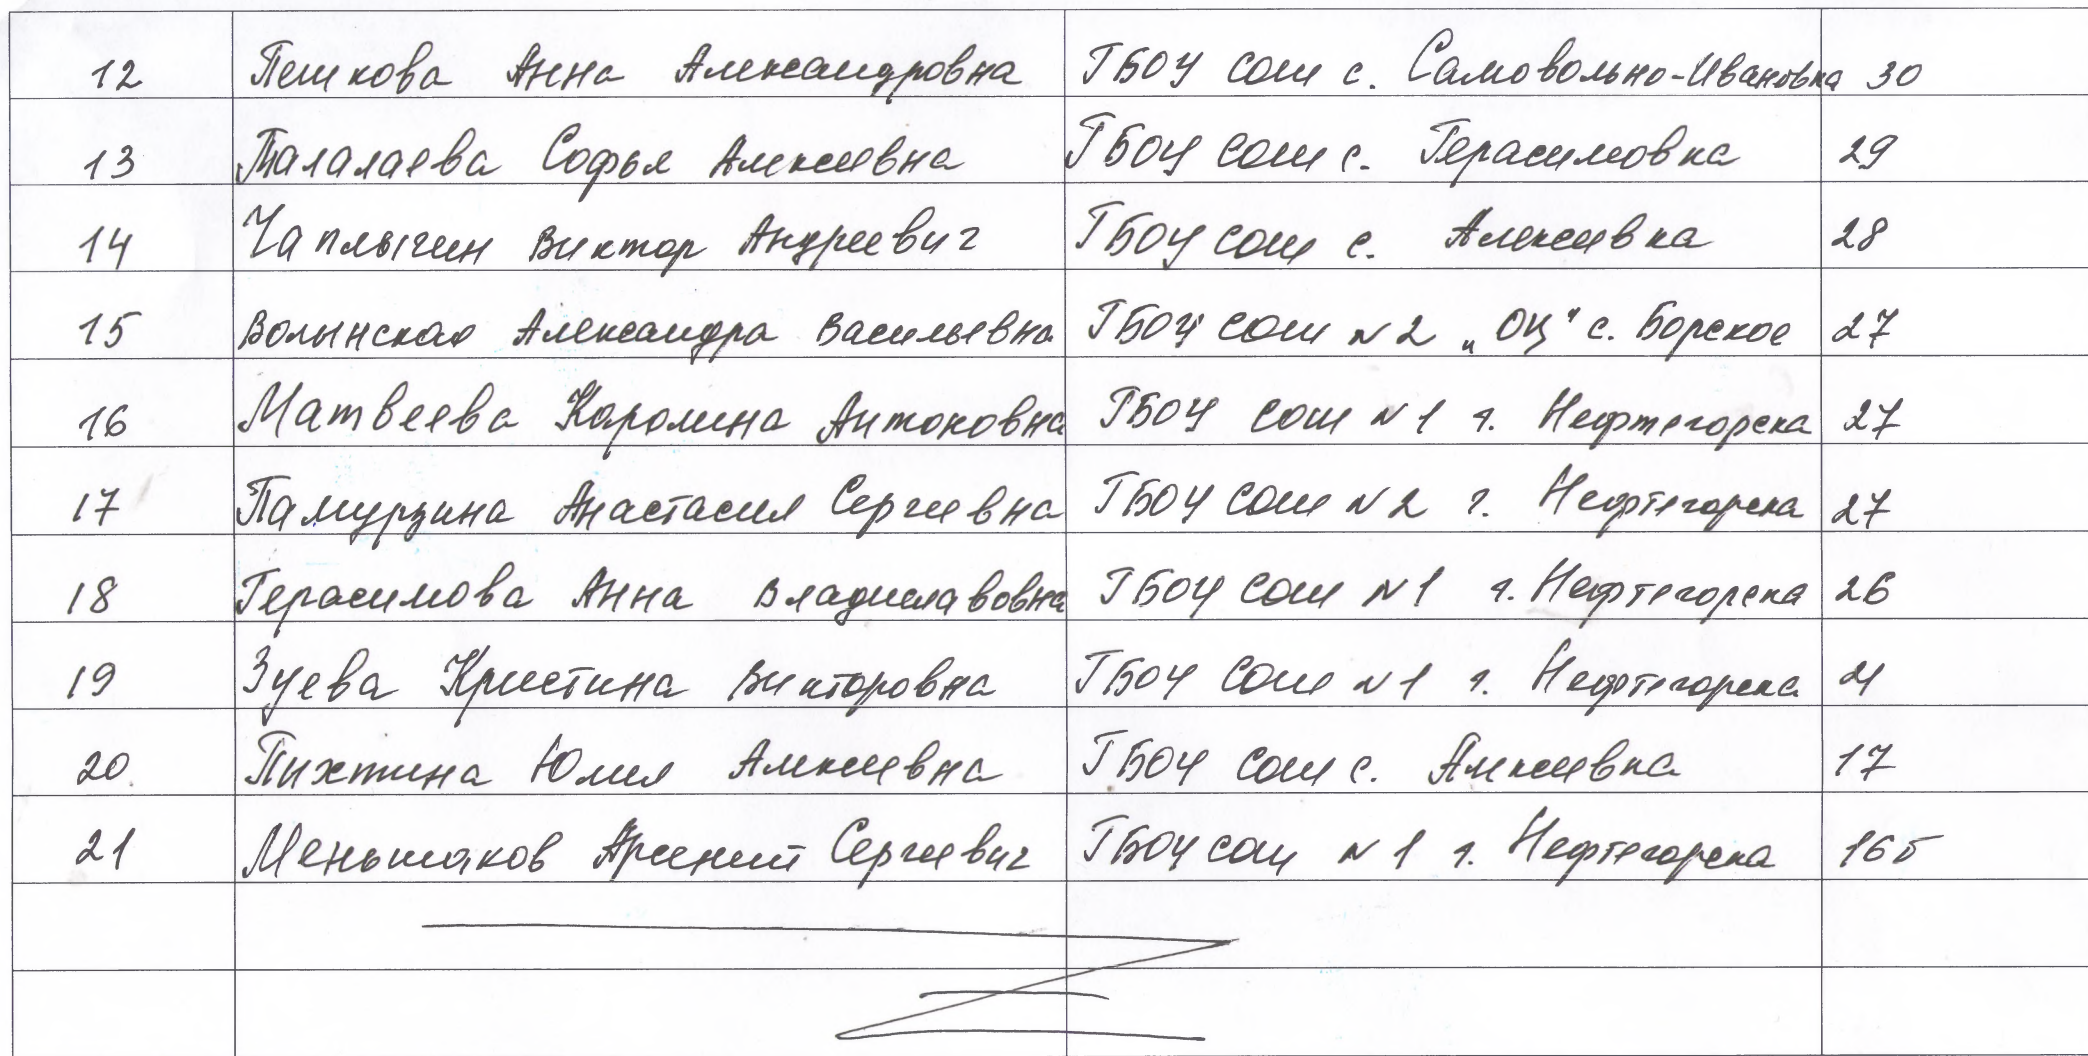 12 Пешкова Анна Александровна ГБОУ СОШ с. Самовольно-Ивановка 30
13 Талалаева Софья Алексеевна ГБОУ СОШ с. Герасимовка 29
14 Чаплыгин Виктор Андреевич ГБОУ СОШ с. Алексеевка 28
15 Волынская Александра Васильевна ГБОУ СОШ №2 „ОЦ" с. Борское 27
16 Матвеева Каролина Антоновна ГБОУ СОШ №1 г. Нефтегорска 27
17 Памурзина Анастасия Сергеевна ГБОУ СОШ №2 г. Нефтегорска 27
18 Герасимова Анна Владиславовна ГБОУ СОШ №1 г. Нефтегорска 26
19 Зуева Кристина Викторовна ГБОУ СОШ №1 г. Нефтегорска
20 Пихтина Юлия Алексеевна ГБОУ СОШ с. Алексеевка 17
21 Меньшаков Арсений Сергеевич ГБОУ СОШ №1 г. Нефтегорска 16б